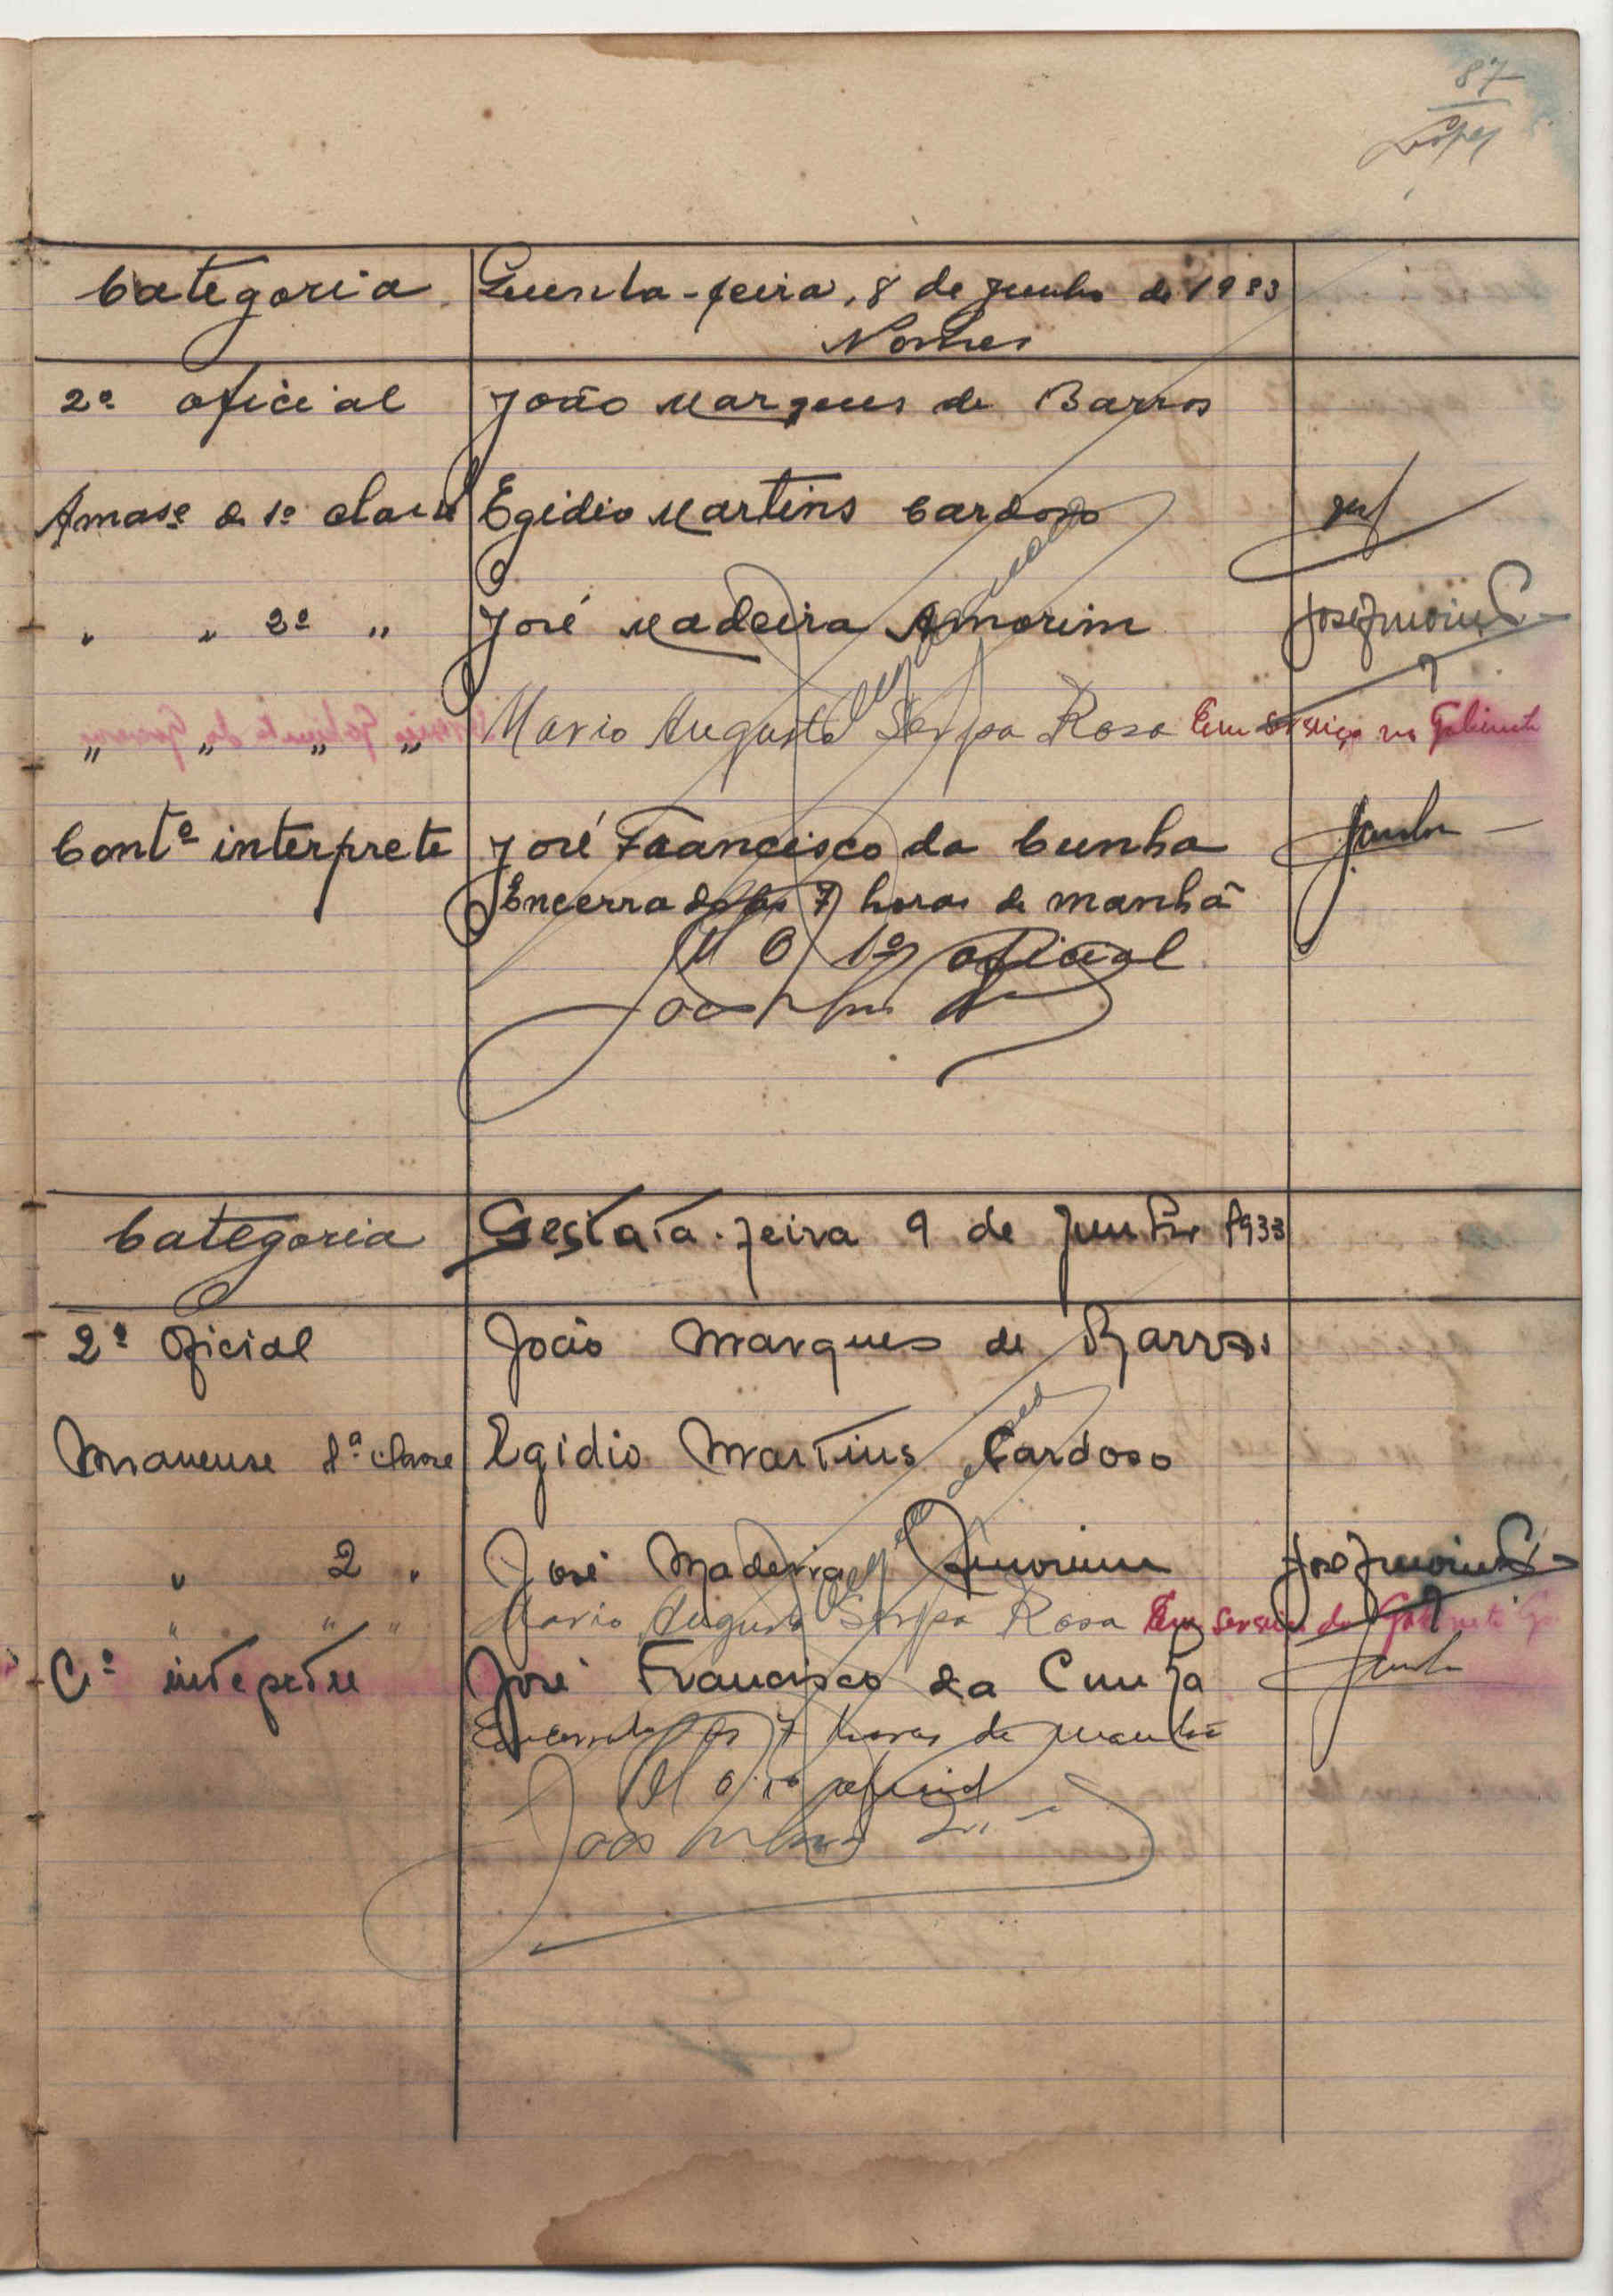 87
Lopes
Categoria Quinta-feira, 8 de Junho de 1933
Nomes
2º oficial João Marques de Barros
Amasº de 1º classe Egidio Martins Cardoso
" " 2º " José Madeira Amorim José Amorim
" " " " Mario Augusto Serpa Rosa Em serviço no Gabinete
Contº interprete José Francisco da Cunha Cunha
Encerrado ás 7 horas da manhã
O 1º oficial
Categoria Sestaía-feira 9 de Junho 1933
2º Oficial João Marques de Barros
Amanuense 1ª classe Egidio Martins Cardoso
" 2 " José Madeira Amorim José Amorim
" " " Mario Augusto Serpa Rosa Em serviço do Gabinete
Cº intepetre José Francisco da Cunha Cunha
Encerrado ás 7 horas da manhã
O 1º oficial